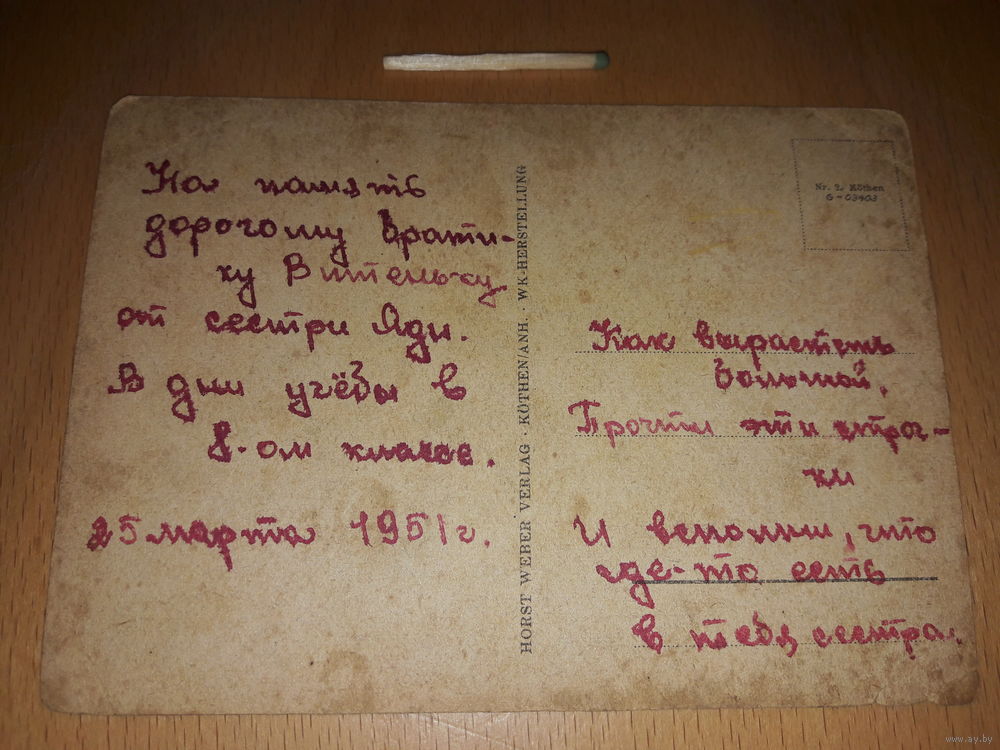 На память
дорогому брати-
ку Витеньку
от сестри Яди.
В дни учёбы в
8-ом классе.
25 марта 1951 г.
HORST WEBER VERLAG · KÖTHEN/ANH. · WK-HERSTELLUNG
Nr. 2, Köthen
G-03403
Как вырастеть
большой,
Прочти эти строч-
ки
И вспомни, что
где-то есть
в тебя сестра.
www.ay.by